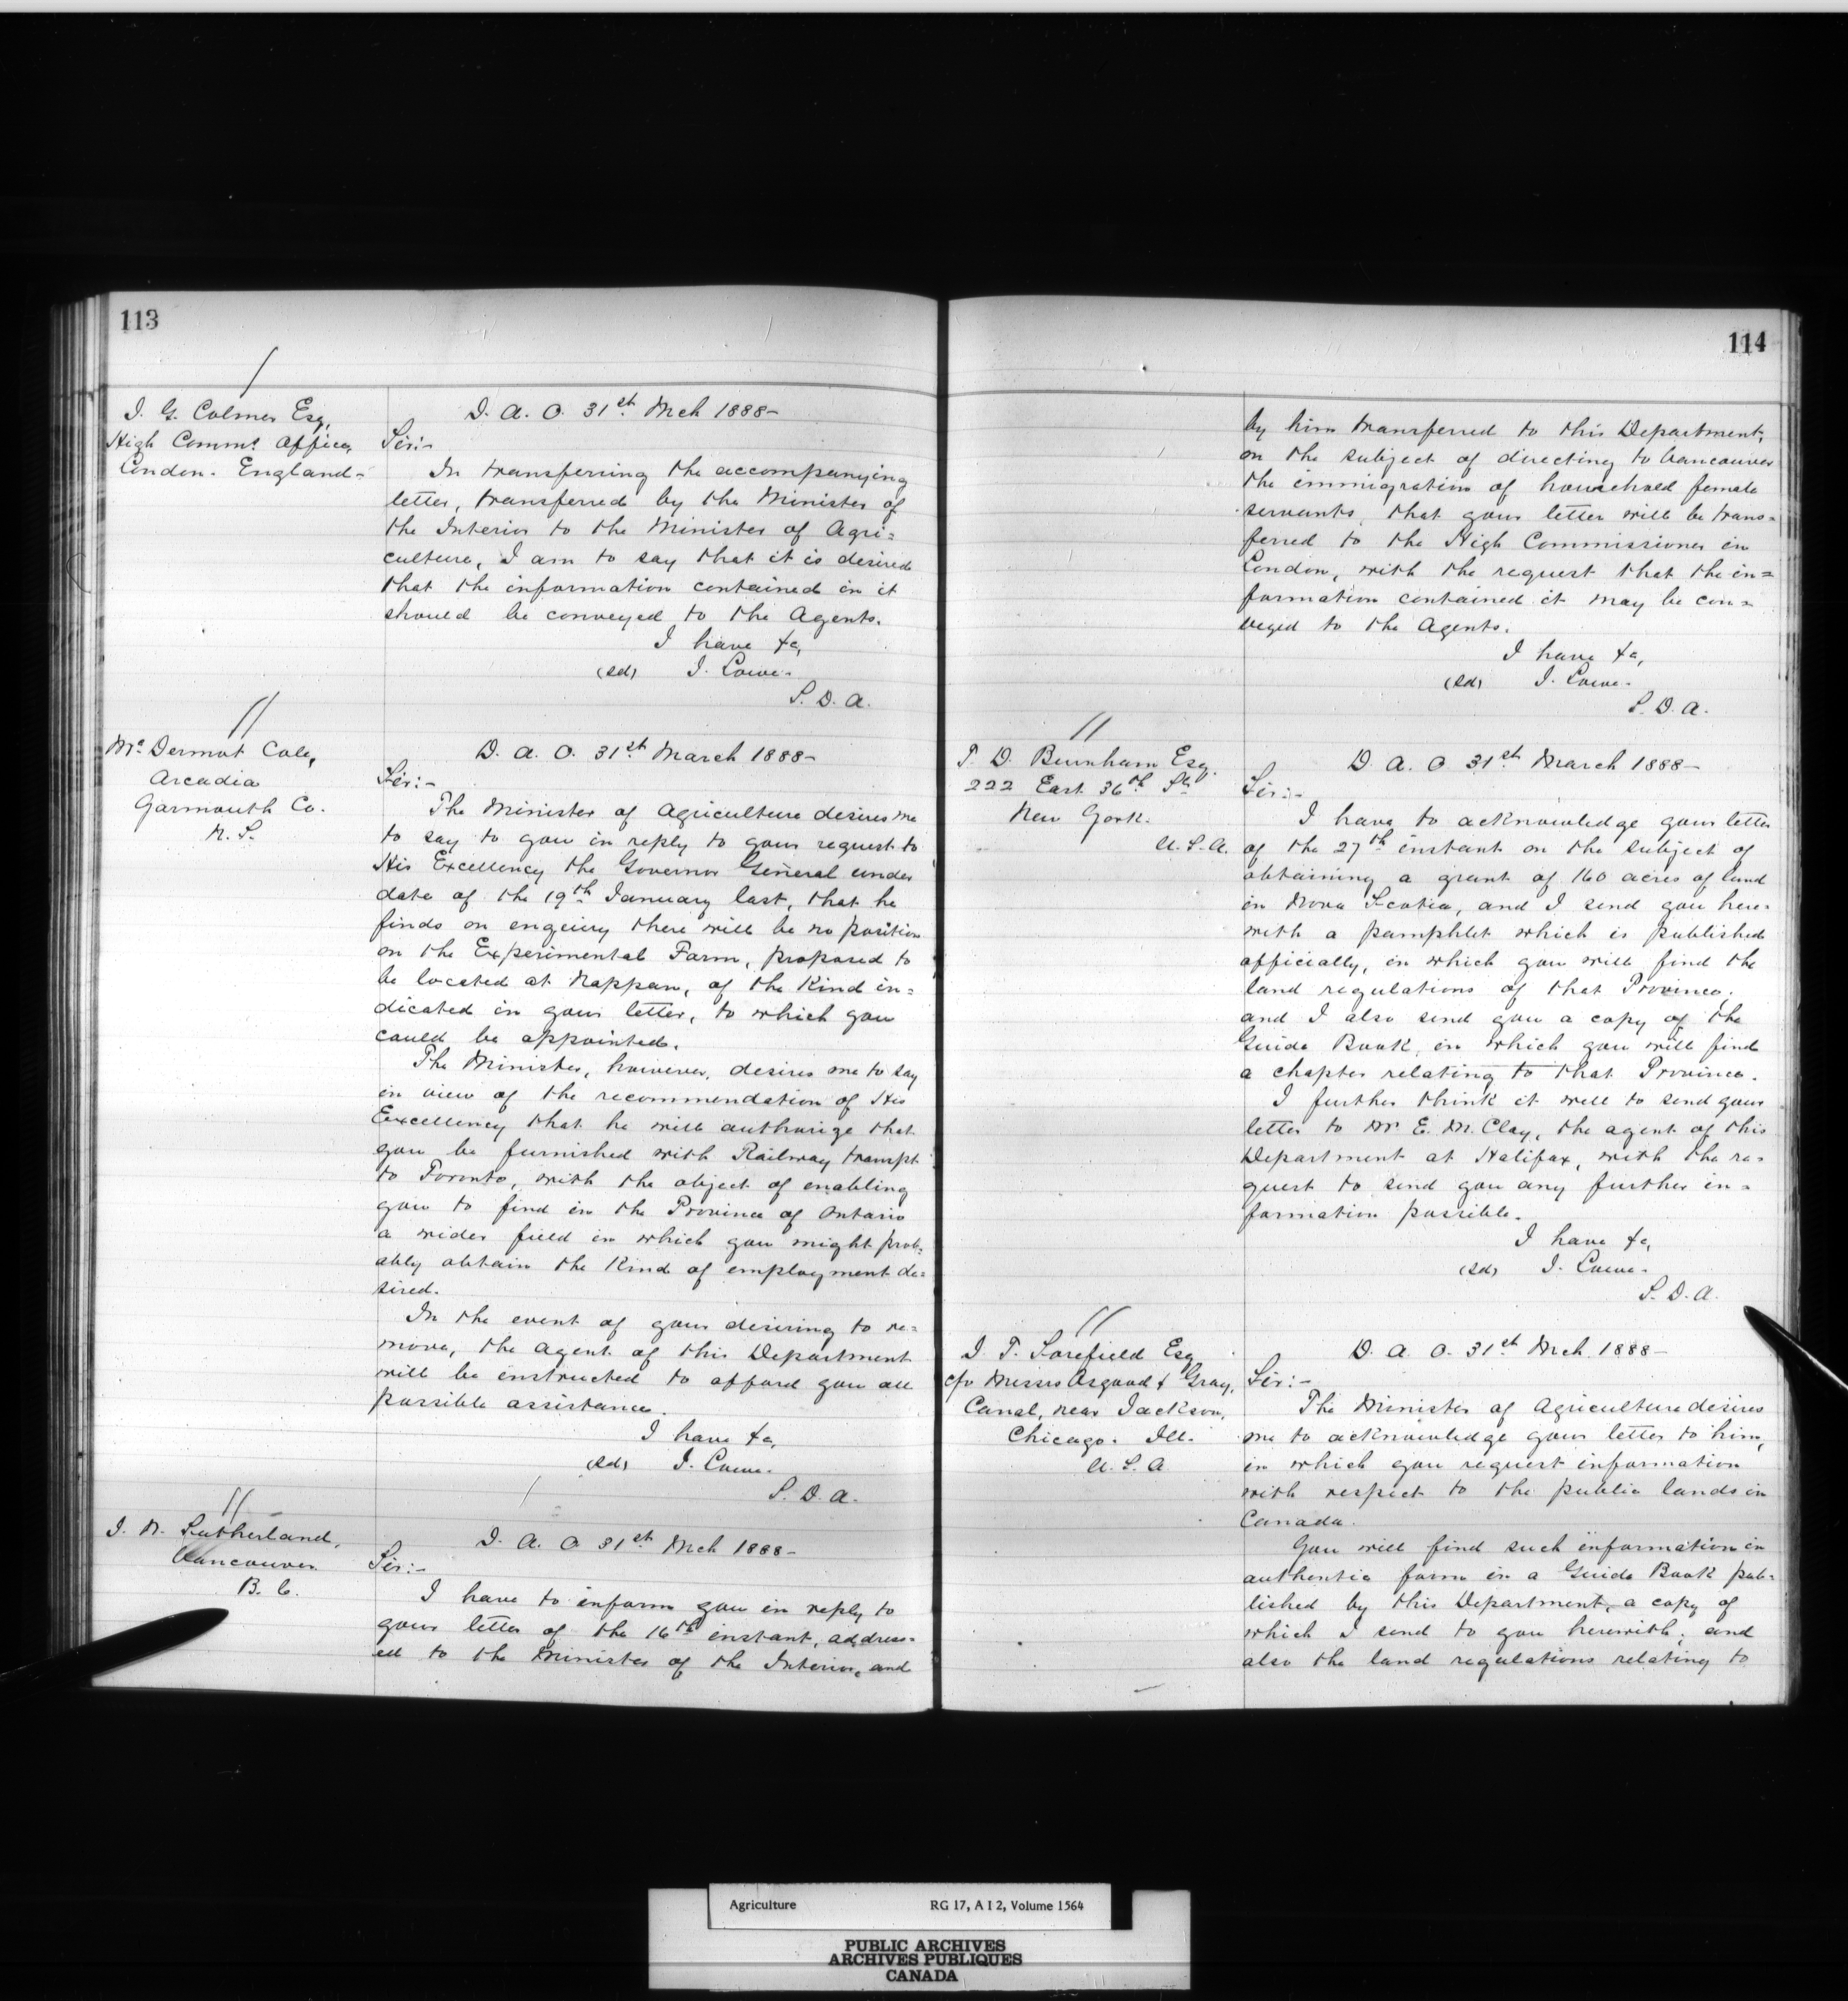 113
J. G. Colmer Esq,
High Comms. Office,
London. England-
D. A. O. 31st Mch 1888-
Sir:-
In transferring the accompanying
letter, transferred by the Minister of
the Interior to the Minister of Agri=
culture, I am to say that it is desired
that the information contained in it
should be conveyed to the Agents.
I have &c,
(sd) J. Lowe.
S. D. A.
McDermot Cole,
Arcadia
Yarmouth Co.
N. S.
D. A. O. 31st March 1888-
Sir:-
The Minister of Agriculture desires me
to say to you in reply to your request to
His Excellency the Governor General under
date of the 19th January last, that he
finds on enquiry there will be no position
on the Experimental Farm, proposed to
be located at Nappan, of the kind in=
dicated in your letter, to which you
could be appointed.
The Minister, however, desires me to say
in view of the recommendation of His
Excellency that he will authorize that
you be furnished with Railway transpt
to Toronto, with the object of enabling
you to find in the Province of Ontario
a wider field in which you might prob=
ably obtain the kind of employment de=
sired.
In the event of your desiring to re=
move, the agent of this Department
will be instructed to afford you all
possible assistance.
I have &c,
(sd) J. Lowe.
S. D. A.
J. N. Sutherland,
Vancouver
B. C.
D. A. O. 31st Mch 1888-
Sir:-
I have to inform you in reply to
your letter of the 16th instant, address=
ed to the Minister of the Interior, and
114
by him transferred to this Department,
on the subject of directing to Vancouver
the immigration of household female
servants, that your letter will be trans=
ferred to the High Commissioner in
London, with the request that the in=
formation contained it may be con=
veyed to the Agents.
I have &c,
(sd) J. Lowe.
S. D. A.
T. D. Burnham Esq.
222 East 36th St.
New York.
U. S. A.
D. A. O 31st March 1888-
Sir:-
I have to acknowledge your letter
of the 27th instant on the subject of
obtaining a grant of 160 acres of land
in Nova Scotia, and I send you here=
with a pamphlet which is published
officially, in which you will find the
land regulations of that Province;
and I also send you a copy of the
Guide Book, in which you will find
a chapter relating to that Province.
I further think it well to send your
letter to Mr E. M. Clay, the agent of this
Department at Halifax, with the re=
quest to send you any further in=
formation possible.
I have &c,
(sd) J. Lowe.
S. D. A.
J. T. Sorefield Esq
c/o Messrs Osgood & Gray,
Canal, near Jackson,
Chicago. Ill.
U. S. A
D. A. O. 31st Mch 1888-
Sir:-
The Minister of Agriculture desires
me to acknowledge your letter to him,
in which you request information
with respect to the public lands in
Canada.
You will find such information in
authentic form in a Guide Book pub=
lished by this Department, a copy of
which I send to you herewith; and
also the land regulations relating to
Agriculture RG 17, A I 2, Volume 1564
PUBLIC ARCHIVES
ARCHIVES PUBLIQUES
CANADA